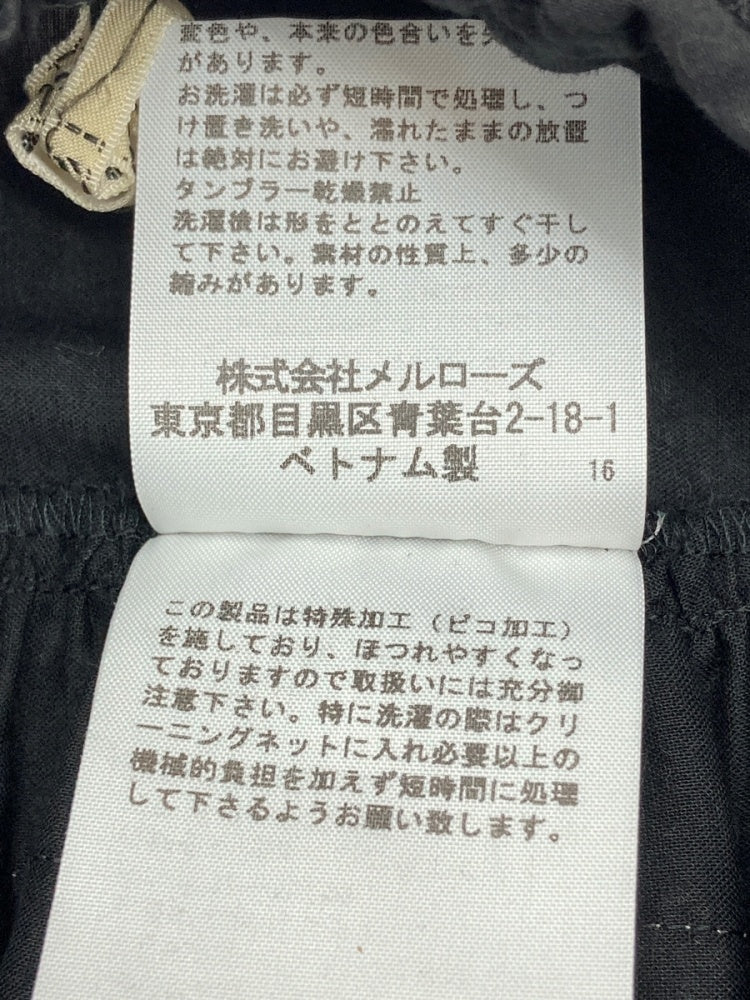 変色や、本来の色合いを失
があります。
お洗濯は必ず短時間で処理し、つ
け置き洗いや、濡れたままの放置
は絶対にお避け下さい。
タンブラー乾燥禁止
洗濯後は形をととのえてすぐ干し
て下さい。素材の性質上、多少の
縮みがあります。
株式会社メルローズ
東京都目黒区青葉台2-18-1
ベトナム製
16
この製品は特殊加工(ピコ加工)
を施しており、ほつれやすくなっ
ておりますので取扱いには充分御
注意下さい。特に洗濯の際はクリ
ーニングネットに入れ必要以上の
機械的負担を加えず短時間に処理
して下さるようお願い致します。